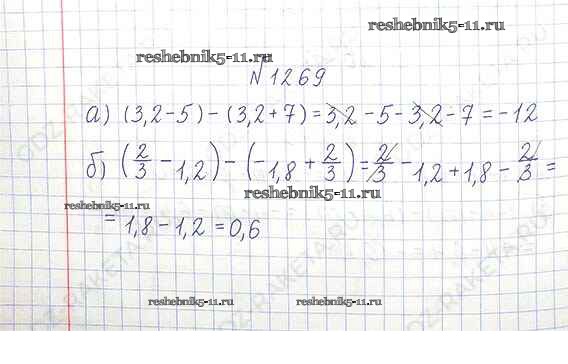 reshebnik5-11.ru
reshebnik5-11.ru
№1269
а) (3,2-5) - (3,2+7) = 3,2 - 5 - 3,2 - 7 = -12
б) (2/3 - 1,2) - (-1,8 + 2/3) = 2/3 - 1,2 + 1,8 - 2/3 =
reshebnik5-11.ru
reshebnik5-11.ru
= 1,8 - 1,2 = 0,6
reshebnik5-11.ru
reshebnik5-11.ru
GDZ-RAKETA.RU